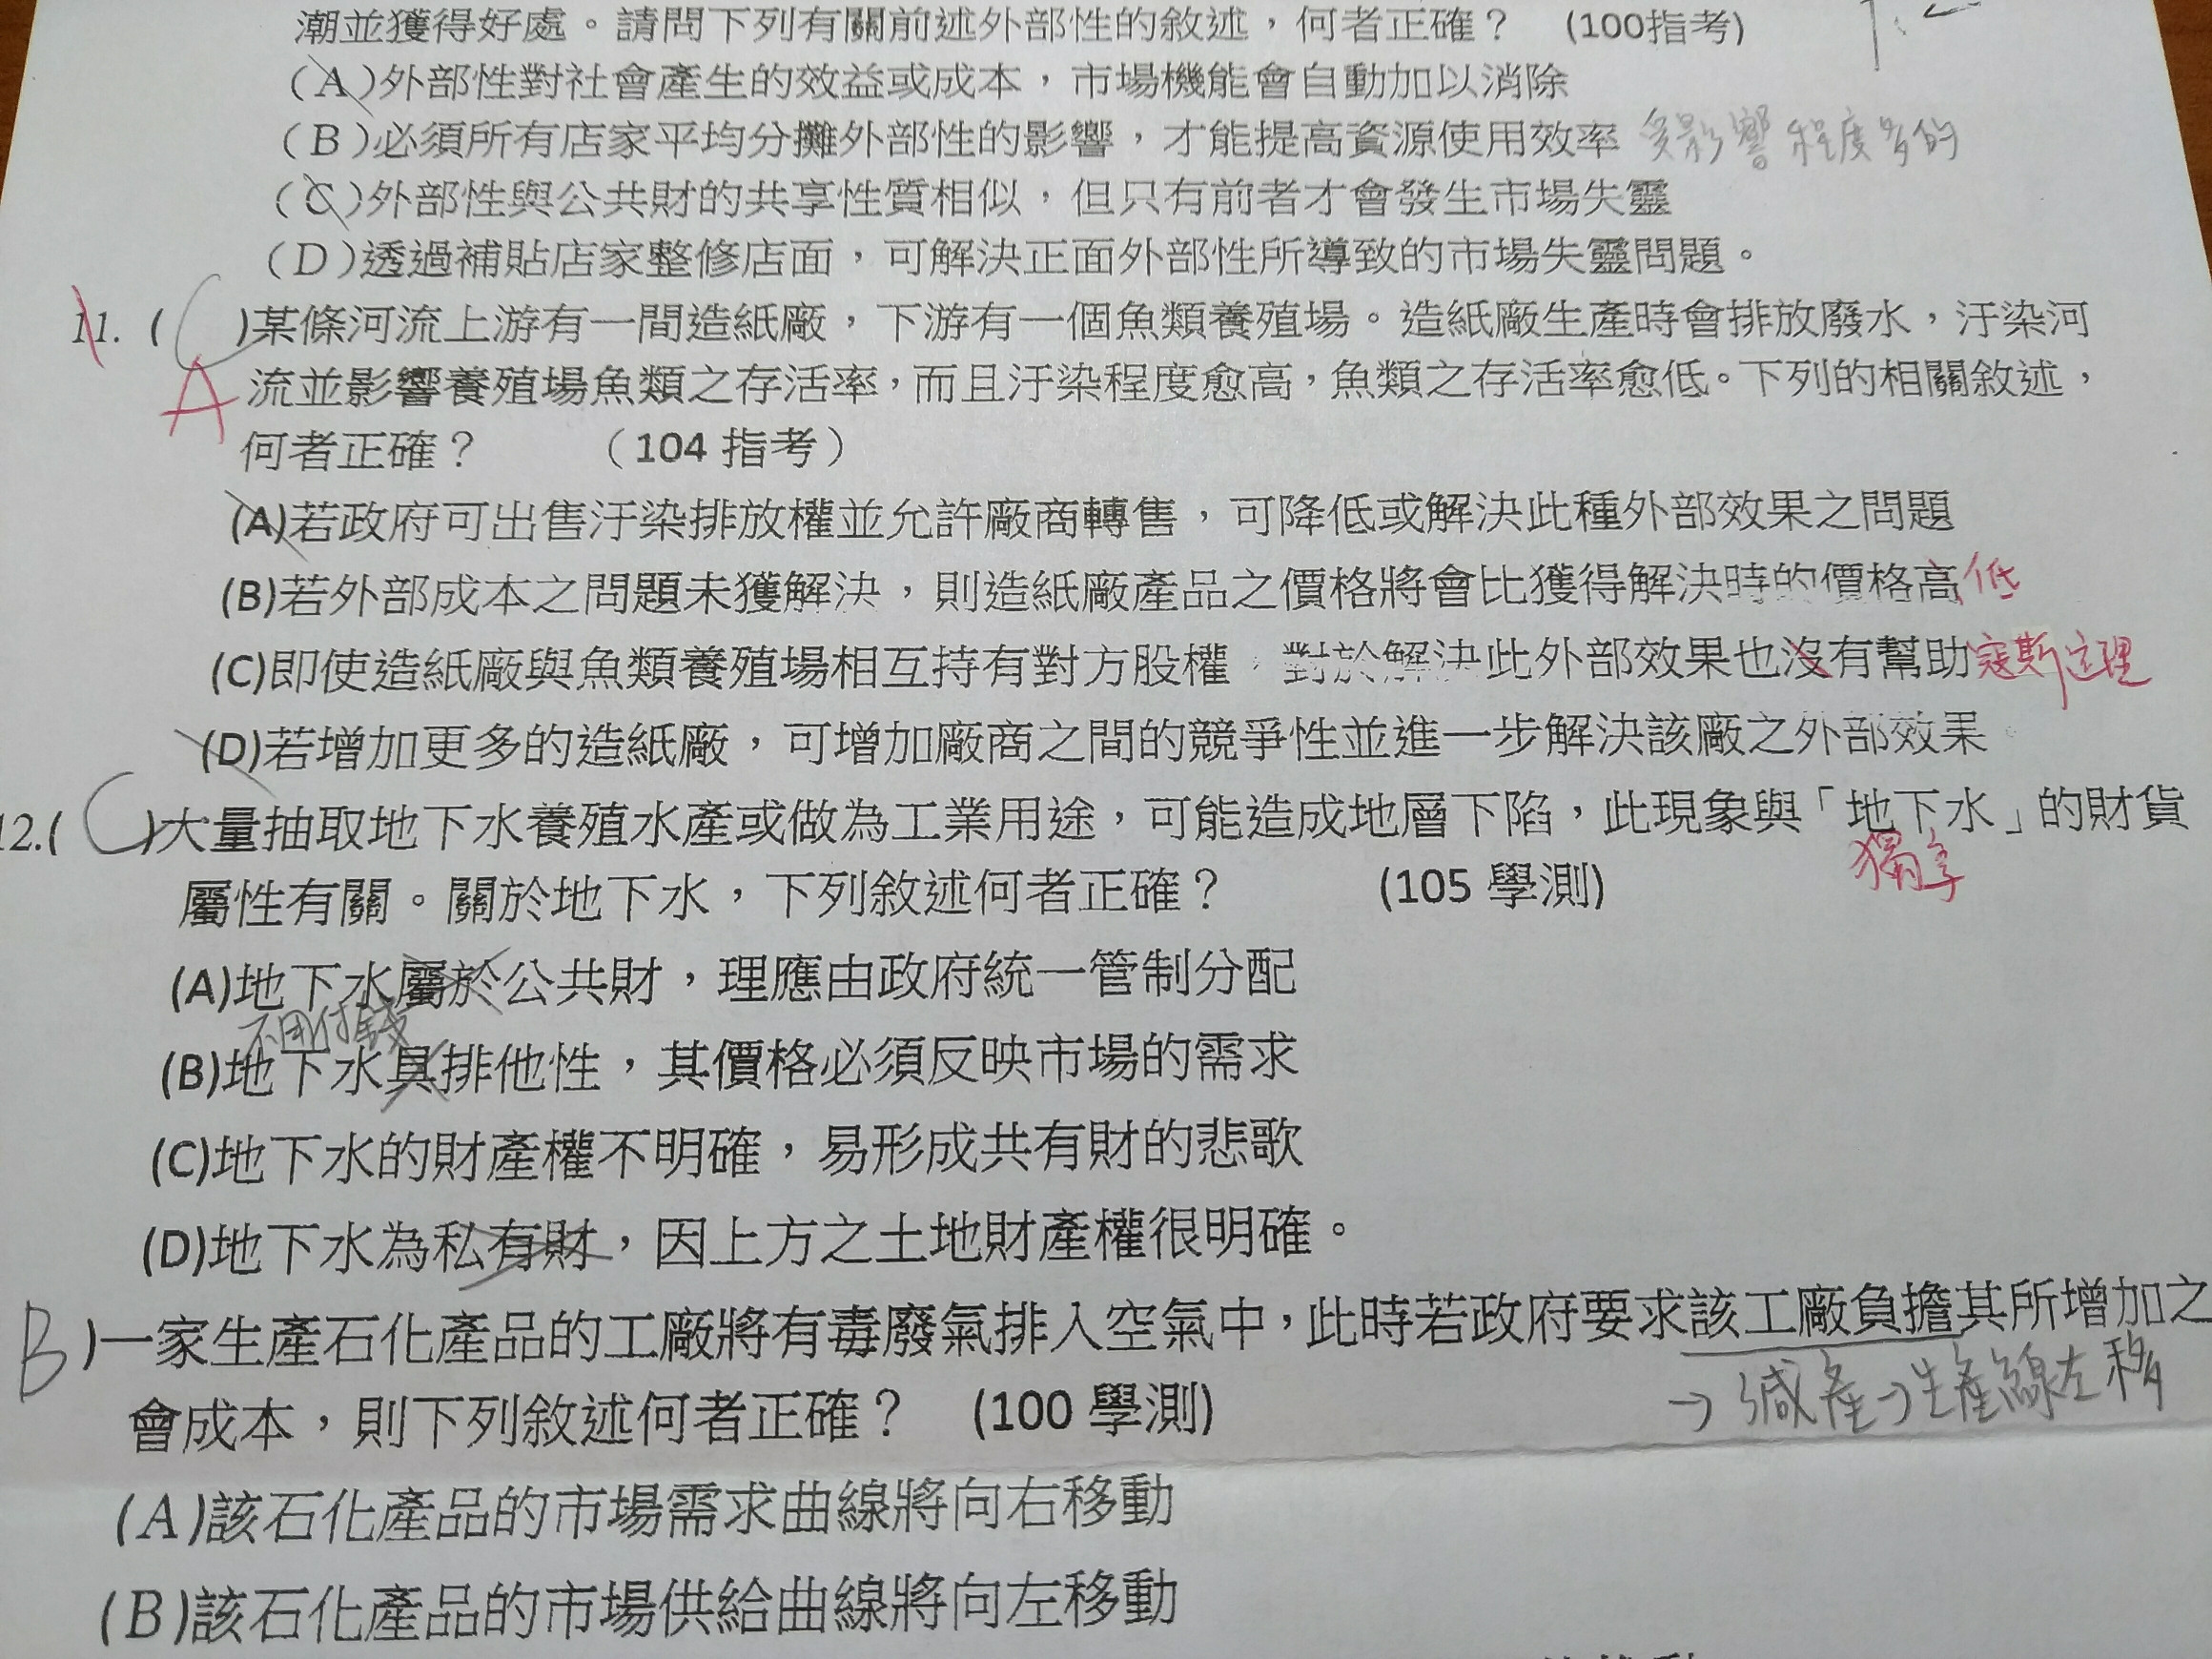 潮並獲得好處。請問下列有關前述外部性的敘述，何者正確？ (100指考)
(A)外部性對社會產生的效益或成本，市場機能會自動加以消除
(B)必須所有店家平均分攤外部性的影響，才能提高資源使用效率 受影響程度多的
(C)外部性與公共財的共享性質相似，但只有前者才會發生市場失靈
(D)透過補貼店家整修店面，可解決正面外部性所導致的市場失靈問題。
11. ( C )某條河流上游有一間造紙廠，下游有一個魚類養殖場。造紙廠生產時會排放廢水，汙染河
A 流並影響養殖場魚類之存活率，而且汙染程度愈高，魚類之存活率愈低。下列的相關敘述，
何者正確？ （104 指考）
(A)若政府可出售汙染排放權並允許廠商轉售，可降低或解決此種外部效果之問題
(B)若外部成本之問題未獲解決，則造紙廠產品之價格將會比獲得解決時的價格高 低
(C)即使造紙廠與魚類養殖場相互持有對方股權，對於解決此外部效果也沒有幫助 寇斯定理
(D)若增加更多的造紙廠，可增加廠商之間的競爭性並進一步解決該廠之外部效果。
12.( C )大量抽取地下水養殖水產或做為工業用途，可能造成地層下陷，此現象與「地下水」的財貨
獨享
屬性有關。關於地下水，下列敘述何者正確？ (105 學測)
(A)地下水屬於公共財，理應由政府統一管制分配
不用付錢
(B)地下水具排他性，其價格必須反映市場的需求
(C)地下水的財產權不明確，易形成共有財的悲歌
(D)地下水為私有財，因上方之土地財產權很明確。
B )一家生產石化產品的工廠將有毒廢氣排入空氣中，此時若政府要求該工廠負擔其所增加之
→減產→生產線左移
會成本，則下列敘述何者正確？ (100 學測)
(A)該石化產品的市場需求曲線將向右移動
(B)該石化產品的市場供給曲線將向左移動